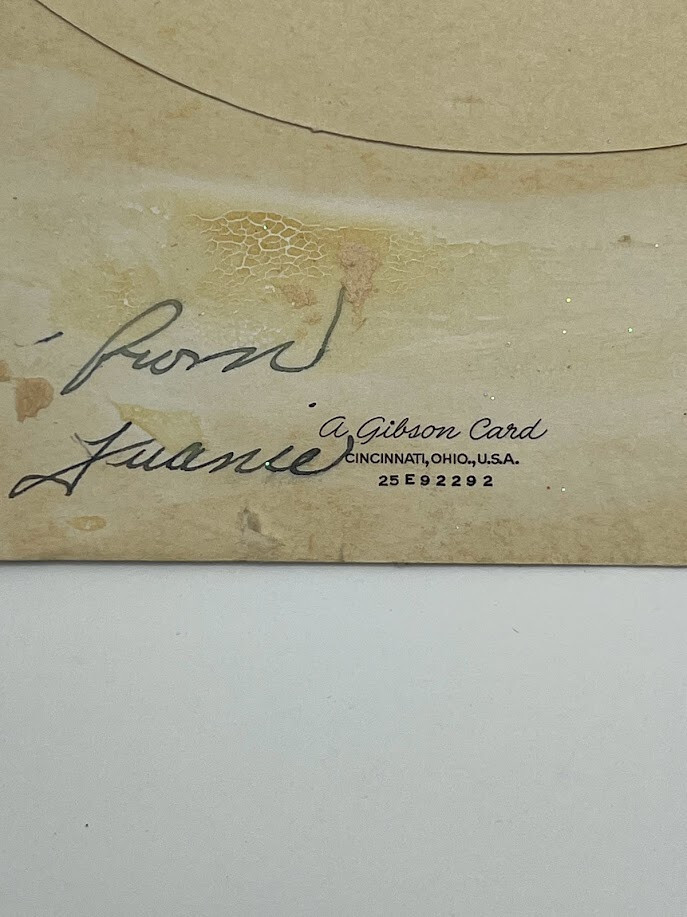 From
A Gibson Card
CINCINNATI, OHIO., U.S.A.
25E92292